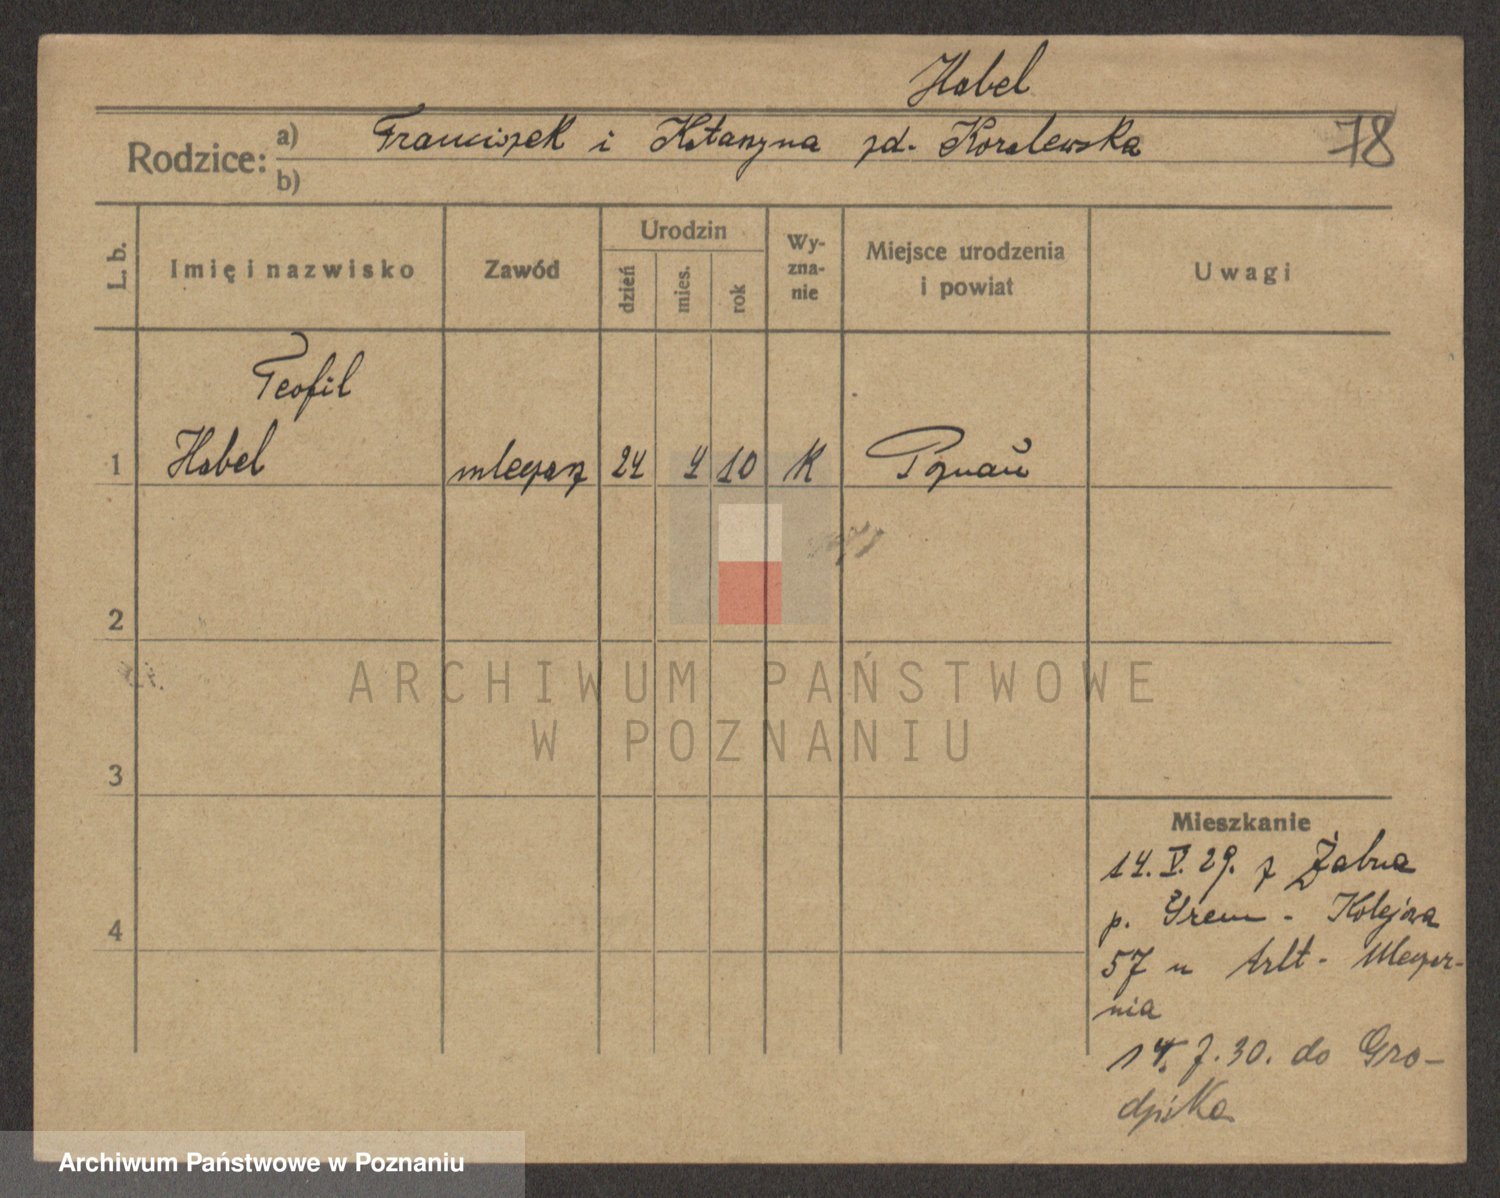 Habel
Rodzice: a) Franciszek i Katarzyna zd. Koralewska
b)
78
L. b.
Imię i nazwisko
Zawód
Urodzin
dzień
mies.
rok
Wy-
zna-
nie
Miejsce urodzenia
i powiat
Uwagi
Teofil
1 Habel mleczarz 24 4 10 K Poznań
2
ARCHIWUM PAŃSTWOWE
W POZNANIU
3
Mieszkanie
14. V. 29. z Żabna
p. Śrem - Kolejowa
4
57 u Arlt - Mleczar-
nia
14. 7. 30. do Gro-
dziska
Archiwum Państwowe w Poznaniu